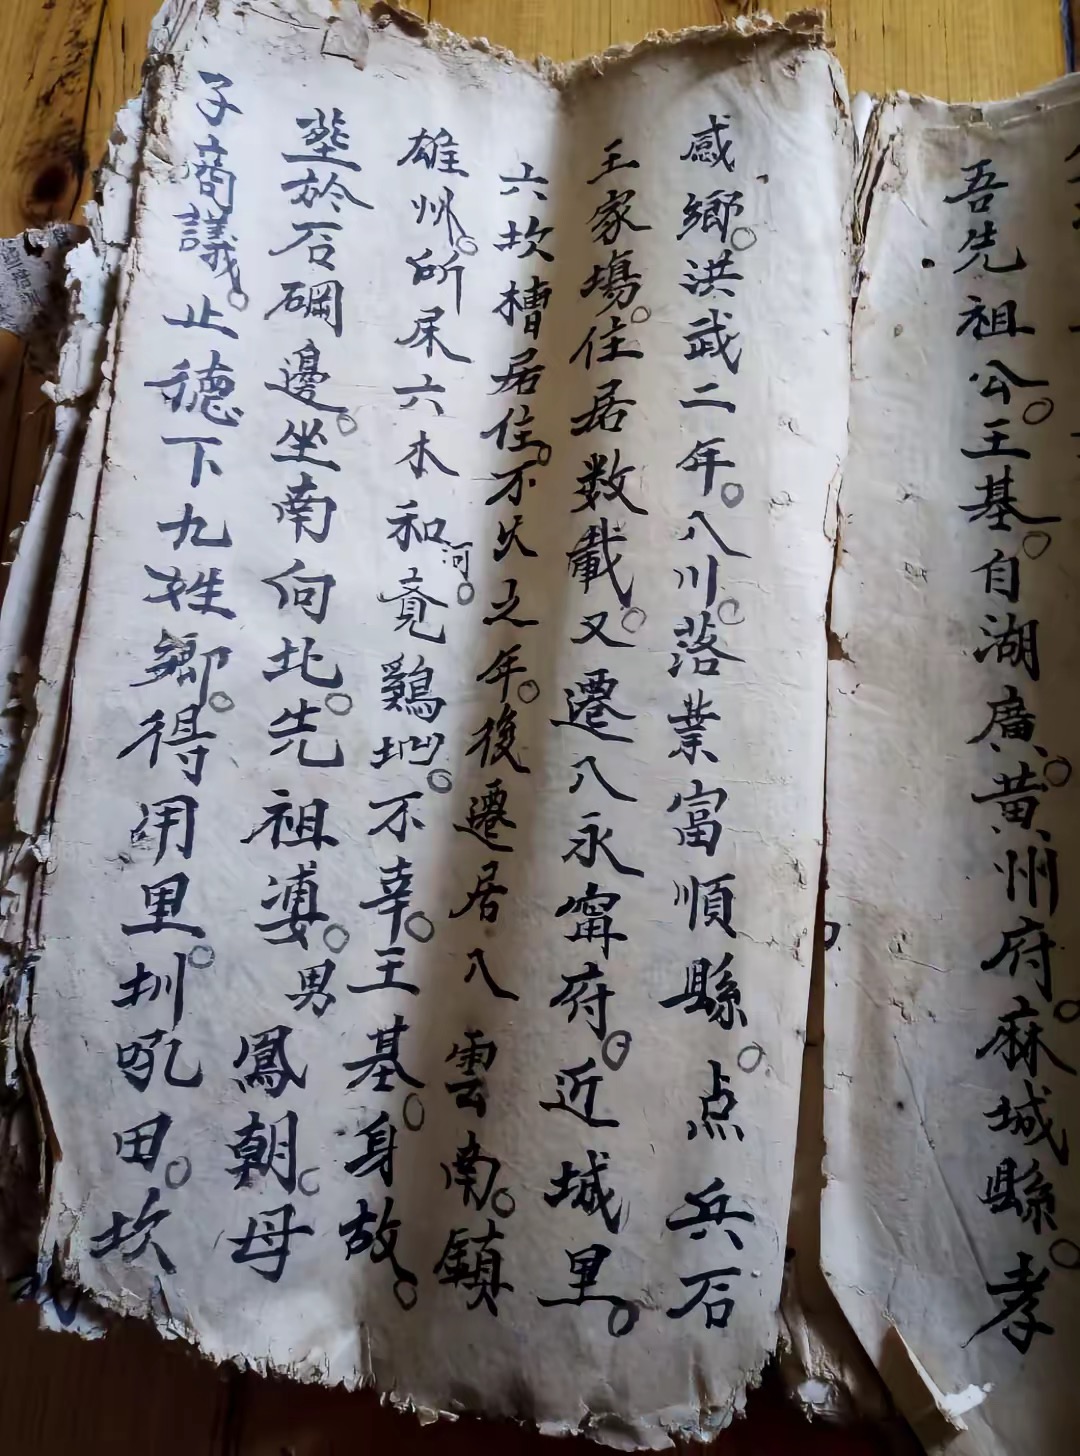 吾先祖公。王基。自湖廣。黃州府。麻城縣。孝
感鄉。洪武二年。八川。落業富順縣。点兵石
王家塲。住居数載。又遷八永寗府。近城里。
六坎槽居住。不久之年。後遷居八雲南。鎮
雄州。所屎六木和河。竟鷄地。不幸。王基。身故。
塟於石硐邊。坐南向北。先祖婆。男鳳朝。母
子商議。止德下九姓鄉。得用里。圳吼田。坎